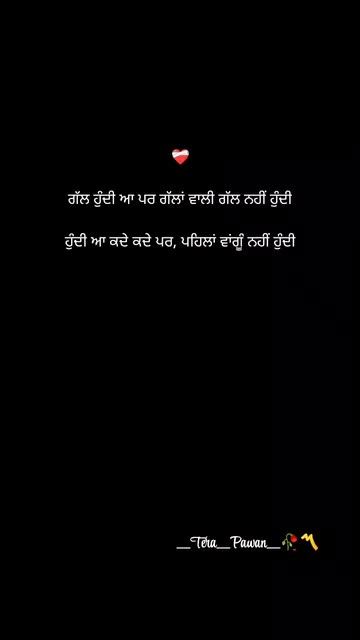 ❤️‍🩹
ਗੱਲ ਹੁੰਦੀ ਆ ਪਰ ਗੱਲਾਂ ਵਾਲੀ ਗੱਲ ਨਹੀਂ ਹੁੰਦੀ
ਹੁੰਦੀ ਆ ਕਦੇ ਕਦੇ ਪਰ, ਪਹਿਲਾਂ ਵਾਂਗੂੰ ਨਹੀਂ ਹੁੰਦੀ
__Tera__Pawan__🥀〽️